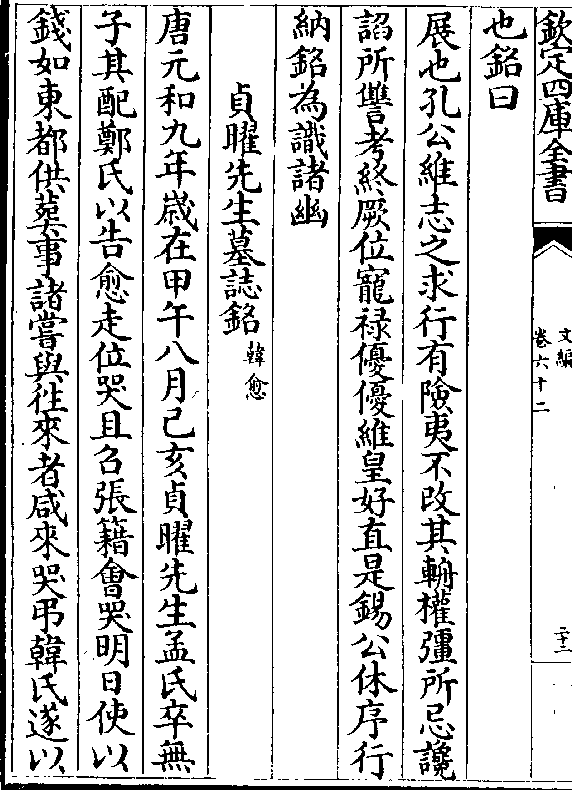 欽定四庫全書
文編
卷六十二
二十三
也銘曰
展也孔公維志之求行有險夷不改其輈權彊所忌讒
諂所讐考終厥位寵祿優優維皇好直是錫公休序行
納銘為識諸幽
貞曜先生墓誌銘韓愈
唐元和九年歲在甲午八月己亥貞曜先生孟氏卒無
子其配鄭氏以告愈走位哭且召張籍會哭明日使以
錢如東都供葬事諸嘗與往來者咸來哭弔韓氏遂以